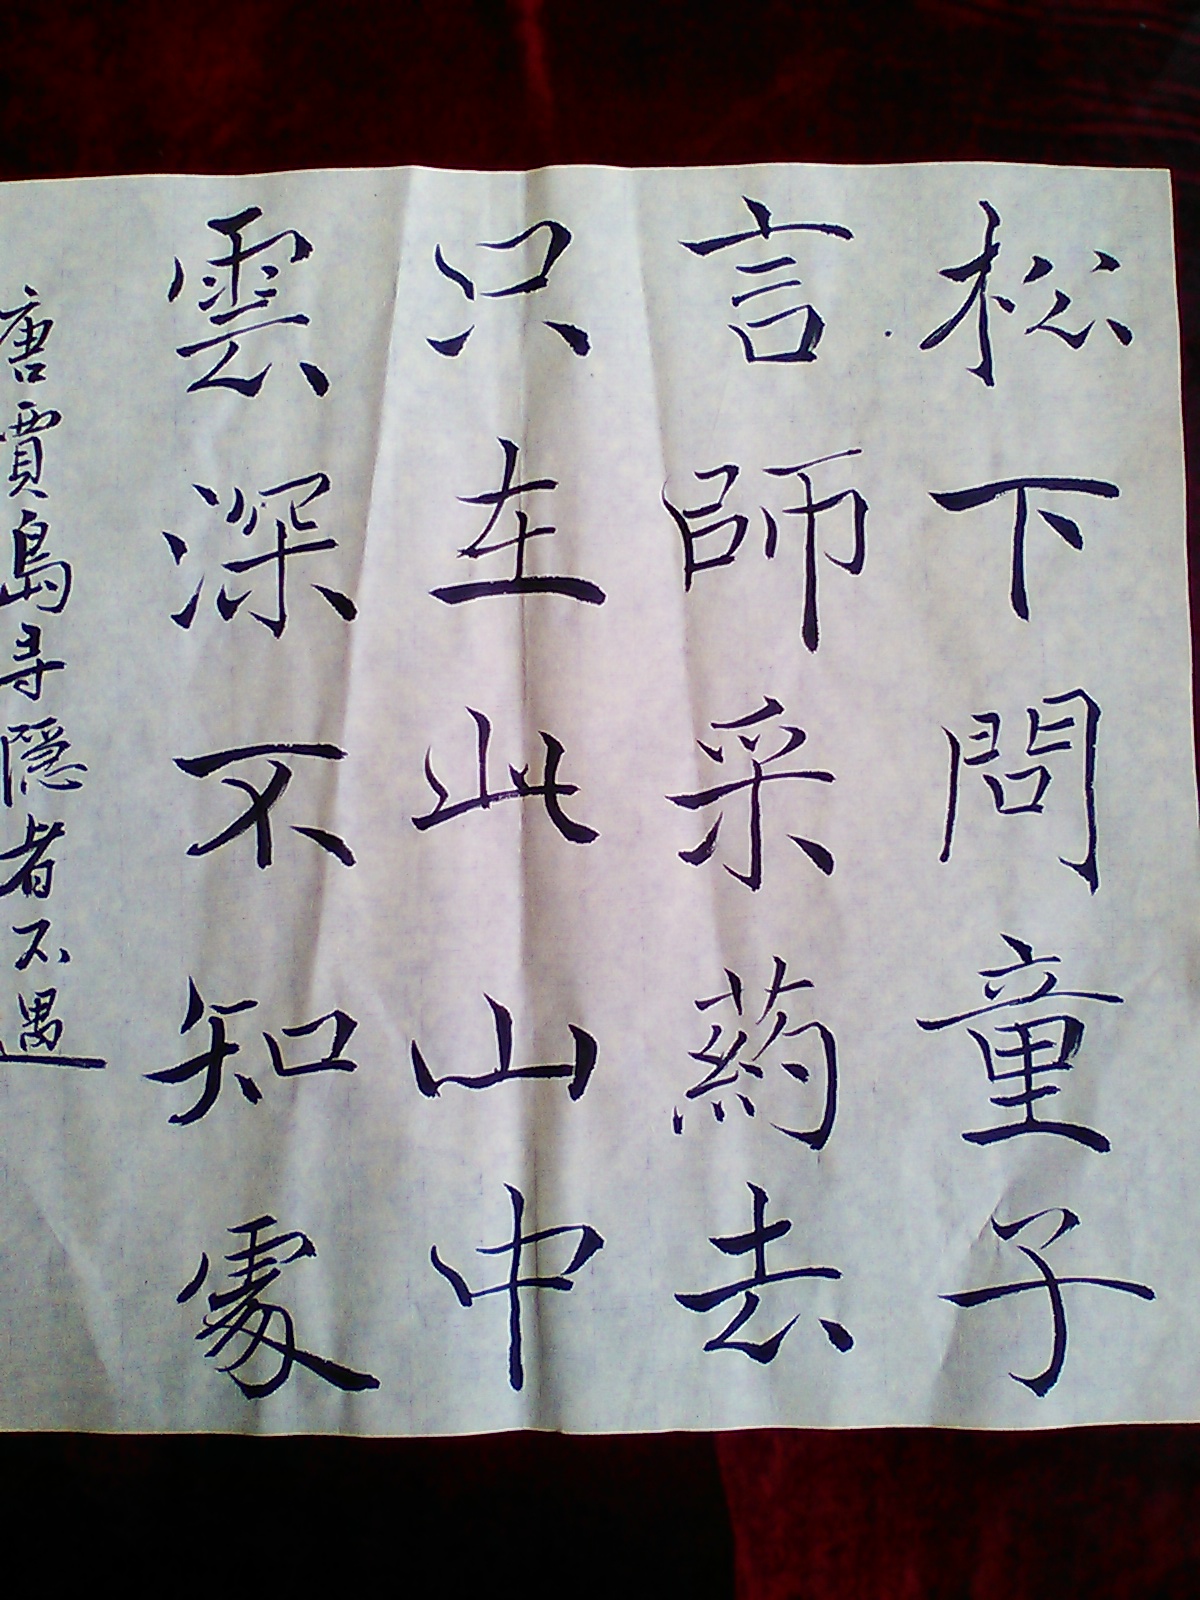 松下問童子
言師采葯去
只在此山中
雲深不知處
唐賈島寻隱者不遇